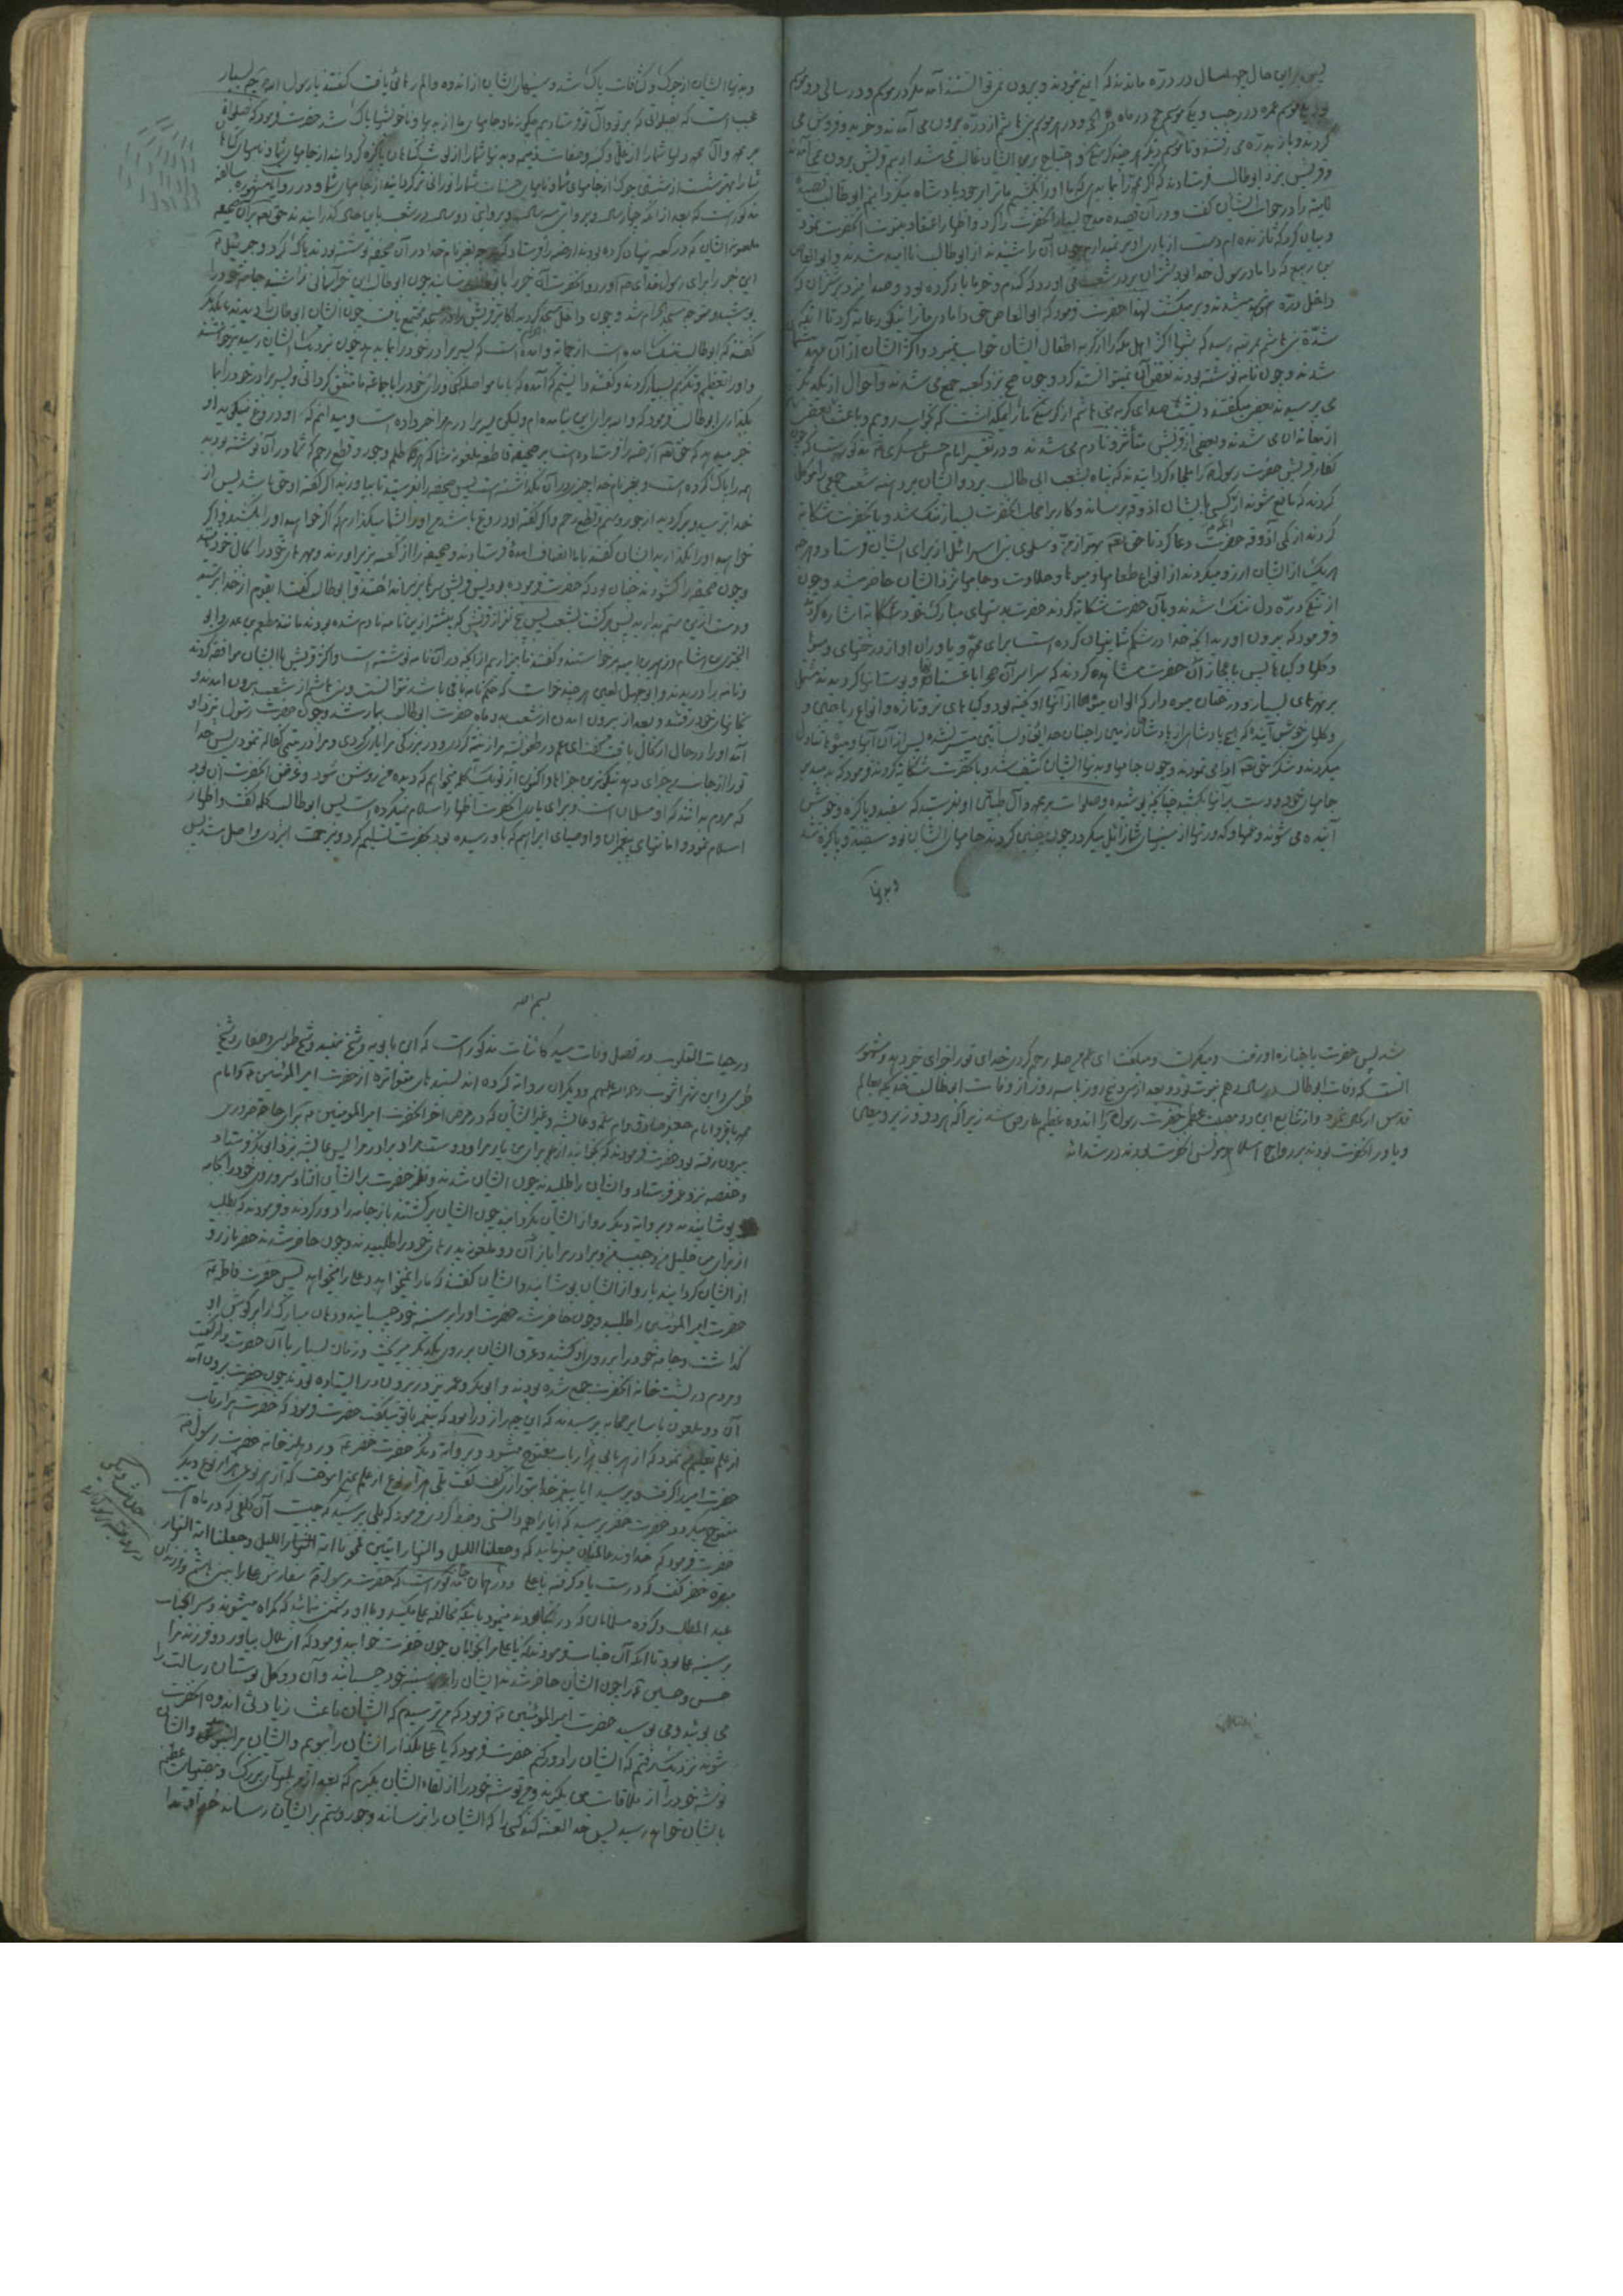 پس بر این حال چهار سال در دره ماندند که ایمن نبودند و بیرون نمی توانستند آمد مگر در موسم و در سالی دو موسم
بود یک موسم عمره در رجب و یک موسم حج در ماه ذی الحجه و در هر موسم بنی هاشم از دره بیرون می آمدند و خرید و فروش می
کردند و باز بدره می رفتند تا موسم دیگر هر چند گرسنگی و احتیاج بر ایشان غالب می شد از بیم قریش بیرون نمی آمدند
و قریش نزد ابو طالب فرستادند که اگر محمد را بما بدهی که ما او را بکشیم ما ترا بر خود پادشاه میگردانیم ابو طالب قصیده
لامیه را در جواب ایشان گفت و در آن قصیده مدح بسیار آنحضرت را کرد و اظهار اعتقاد بنبوت آنحضرت نمود
و بیان کرد که تا زنده ام دست از یاری او بر نمیدارم چون آن را شنیدند از ابو طالب ناامید شدند و ابو العاص
بن ربیع که داماد رسول خدا بود شتران بر در شعب می آورد که گندم و خرما بار کرده بود و صدا میزد بر شتران که
داخل دره میشدند و بر میگشت لهذا حضرت فرمود که ابو العاص حق دامادی ما را نیکو رعایت کرد تا آنکه
شدند و چون نامه نوشته بودند نقض آن نمیتوانستند کرد و چون صبح نزد کعبه جمع می شدند و احوال از یکدیگر
می پرسیدند بعضی میگفتند دیشب صدای گریه بنی هاشم از گرسنگی ما را نگذاشت که بخواب رویم
کفار قریش حضرت رسول را ملجاء گردانیدند که پناه بشعب ابی طالب برد و ایشان بر دهنه شعب جمعی را موکل
کردند که مانع شوند از آنکه کسی بایشان آذوقه برساند و کار بر اصحاب آنحضرت بسیار تنگ شد و بآنحضرت شکایت
کردند از کمی آذوقه حضرت دعا کرد تا حق تعالی بهتر از من و سلوی بنی اسرائیل از برای ایشان فرستاد و هر چه
هر یک از ایشان آرزو میکردند از انواع طعامها و میوه ها و حلاوت و جامها نزد ایشان حاضر میشد و چون
از تنگی دره دل تنگ شدند و بآن حضرت شکایت کردند حضرت بدستهای مبارک خود بکوهها اشاره کرد
و فرمود که بیرون آورید آنچه خدا در شکم شما پنهان کرده است برای محمد و یاوران او از درختهای و میوه
و گلها و گیاه ها پس باعجاز آن حضرت مشاهده کردند که سراسر آن صحرا باغستانها و بوستانها گردیدند مشتمل
بر نهرهای بسیار و درختان میوه دار که الوان میوه ها از آنها آویخته بود و گیاه های تر و تازه و انواع ریاحین و
میکردند و شکر حق تعالی ادا می نمودند و چون جامها و بدنهای ایشان کثیف شد و بآنحضرت شکایت کردند فرمود که بدمید بر
جامهای خود و دست بر آنها بکشید چنانچه پوشیده و صلوات بر محمد و آل طیبین او بفرستید که سفید و پاکیزه و خوش
آینده می شوند و غمها و کدورتها از سینهای شما زایل میگردد چون چنین کردند جامهای ایشان نو و سفید و پاکیزه شد
و بدنها
و بدنهای ایشان از چرک و کثافات پاک شد و سینهای ایشان از اندوه و الم رهائی یافت گفتند یا رسول الله چه بسیار
عجب است که بصلواتی که بر تو و آل تو فرستادیم چگونه بدنها و جامهای ما از بدیها و ناخوشیها پاک شد حضرت فرمود که صلواتی
مذکور است که بعد از آنکه چهار سال و بروایتی سه سال و بروایتی دو سال در شعب باین حال گذرانیدند حق تعالی بر آن صحیفه
ملعونه ایشان که در کعبه پنهان کرده بودند ارضه را فرستاد که هر چه بغیر نام خدا در آن صحیفه نوشته بودند پاک کرد و جبرئیل
این خبر را برای رسول خدا آورد و آنحضرت آن خبر را بابو طالب رسانید چون ابو طالب این خبر آسمانی را شنید جامه خود را
پوشید و متوجه مسجد الحرام شد و چون داخل مسجد گردید اکابر قریش را در مسجد مجتمع یافت چون ایشان ابو طالب را دیدند با یکدیگر
گفتند که ابو طالب تنگ آمده است از حمایت و آمده است که پسر برادر خود را بما بدهد چون نزدیک ایشان رسید برخاستند
و او را تعظیم و تکریم بسیار کردند و گفتند دانستیم که آمده که با ما مواصله کنی و رأی خود را با جماعت ما متفق گردانی و پسر برادر خود را بما
بگذاری ابو طالب فرمود که والله برای این نیامده ام ولیکن پسر برادرم مرا خبر داده است و میدانم که او دروغ نمیگوید او
خبر میدهد که حق تعالی ارضه را فرستاده است بر صحیفه قاطعه ملعونه شما که هر چه ظلم و جور و قطع رحم که شما در آن نوشته بودید
همه را پاک کرده است و بغیر نام خدا چیزی در آن نگذاشته است پس صحیفه را بفرستید تا بیاورند اگر گفته او حق باشد پس از
خدا بترسید و برگردید از جور و ستم و قطع رحم و اگر گفته او دروغ باشد من او را بشما میگذارم که اگر خواهید او را بکشید و اگر
خواهید او را بگذارید ایشان گفتند یا ابا طالب با ما انصاف آمدی فرستادند و صحیفه را از کعبه بزیر آوردند و مهرهای خود را بحال خود یافتند
و چون صحیفه را گشودند چنان بود که حضرت فرموده بود پس قریش سرها بزیر انداختند و ابو طالب گفت ای قوم از خدا بترسید
و دست ازین ستم بدارید پس برگشت بشعب پس پنج نفر از قریش که پیشتر ازین نامه نادم شده بودند مانند مطعم بن عدی و ابو
و نامه را دریدند و ابو جهل لعین هر چند خواست که حکم نامه باقی باشد نتوانست و بنی هاشم از شعب بیرون آمدند و
بخانهای خود رفتند و بعد از بیرون آمدن از شعب بدو ماه حضرت ابو طالب بیمار شد و چون حضرت رسول نزد او
آمد او را در حال ارتحال یافت گفت ای عم در طفولیت مرا تربیت کردی و در بزرگی مرا یاری کردی و مرا در یتیمی کفالت نمودی پس خدا
ترا از جانب من جزای دهد نیکوترین جزاها و اکنون از تو یک کلمه میخواهم که دیده من روشن شود و غرض آنحضرت آن بود
که مردم بدانند که او مسلمان است و برای یاری آنحضرت اظهار اسلام نمیکرده است پس ابو طالب کلمه گفت و اظهار
اسلام نمود و امانتهای پیغمبران و اوصیای ابراهیم که باو رسیده بود بحضرت تسلیم کرد و برحمت ایزدی واصل شد پس
شد پس حضرت با جنازه او رفت و میگریست و میگفت ای عم من صله رحم کردی خدای ترا جزای خیر دهد و مشهور
آنست که وفات ابو طالب در سال دهم نبوت بود و بعد از سی و پنج روز یا سه روز از وفات ابو طالب خدیجه بعالم
قدس ارتحال نمود و از تتابع این دو مصیبت عظمی حضرت رسول را اندوه عظیم عارض شد زیرا که هر دو وزیر و معین
و یاور آنحضرت بودند بر رواج اسلام و مونس آنحضرت بودند در شداید
بسم الله
در حیات القلوب در فصل وفات سید کائنات مذکور است که ابن بابویه و شیخ مفید و شیخ طوسی و صفار و شیخ
طبرسی و ابن شهر آشوب رحمة الله علیهم و دیگران روایت کرده اند بسندهای متواتره از حضرت امیر المؤمنین و امام
محمد باقر و امام جعفر صادق و ام سلمه و عایشه و غیر ایشان که در مرض آخر آنحضرت امیر المؤمنین برای حاجت ضروری
بیرون رفته بود حضرت فرمودند که بخوانید از برای من یار مرا و دوست مرا و برادر مرا پس عایشه نزد ابو بکر فرستاد
و حفصه نزد عمر فرستاد و ایشان را طلبیدند چون ایشان شدند و نظر حضرت بر ایشان افتاد سر و روی خود را بجامه
پوشانیدند و بروایت دیگر رو از ایشان بگردانید چون ایشان برگشتند باز جامه را دور کردند و فرمودند که بطلبید
از برای من خلیل من و حبیب من و برادر مرا باز آن دو ملعونه پدرهای خود را طلبیدند و چون حاضر شدند حضرت باز رو
از ایشان گردانیدند یا رو از ایشان پوشانید و ایشان گفتند که ما را نمیخواهد و علی را میخواهد پس حضرت فاطمه
حضرت امیر المؤمنین را طلبید و چون حاضر شد حضرت او را بر سینه خود چسبانید و دهان مبارک را بر گوش او
گذاشت و جامه خود را بر روی او کشید و عرق ایشان بر روی یکدیگر میریخت و زمان بسیار با آن حضرت راز گفت
و مردم در پشت خانه آنحضرت جمع شده بودند و ابو بکر و عمر نیز در بیرون در ایستاده بودند چون حضرت بیرون آمد
آن دو ملعون با سایر صحابه پرسیدند که این چه راز دراز بود که پیغمبر با تو میگفت حضرت فرمود که حضرت هزار باب
از علم تعلیم من نمود که از هر بابی هزار باب مفتوح میشود و بروایت دیگر حضرت خضر در دهلیز خانه حضرت رسول
حضرت امیر را گرفت و پرسید آیا پیغمبر خدا بتو راز گفت گفت بلی هزار نوع از علم بمن آموخت که از هر نوعی هزار نوع دیگر
مفتوح میگردد حضرت خضر پرسید که آیا همه را دانستی و ضبط کردی فرمود که بلی پرسید که چیست آن کلفی که در ماه است
حضرت فرمود که خداوند عالمیان میفرماید که وجعلنا اللیل والنهار آیتین فمحونا آیة اللیل وجعلنا آیة النهار
مبصرة خضر گفت که درست یاد گرفته یا علی و در همان مذکور است که حضرت رسول سفارش علی را ببنی هاشم و فرزندان
عبد المطلب و گروه مسلمانان که در آنجا بودند مینمود باینکه مخالفت علی مکنید و با او دشمن نباشید که گمراه میشوید و سر آنجناب
بر سینه علی بود تا آنکه آن جناب فرمودند که یا علی مرا بخوابان چون حضرت خوابید فرمود که ای بلال بیاور دو فرزند مرا
حسن و حسین را چون ایشان حاضر شدند ایشان را بر سینه خود چسبانید و آن دو گل بوستان رسالت را
می بوئید و می بوسید حضرت امیر المؤمنین فرمود که من ترسیدم که ایشان باعث زیادتی اندوه آنحضرت
شوند نزدیک رفتم که ایشان را دور کنم حضرت فرمود که یا علی بگذار ایشان را ببویم و ایشان مرا ببویند و ایشان
توشه خود را از ملاقات من بگیرند و من توشه خود را از لقاء ایشان بگیرم که بعد از من بلاهای بزرگ و مصیبتهای عظیم
بایشان خواهد رسید پس خدا لعنت کند کسی را که ایشان را بترساند و جور و ستم بر ایشان رساند خداوندا